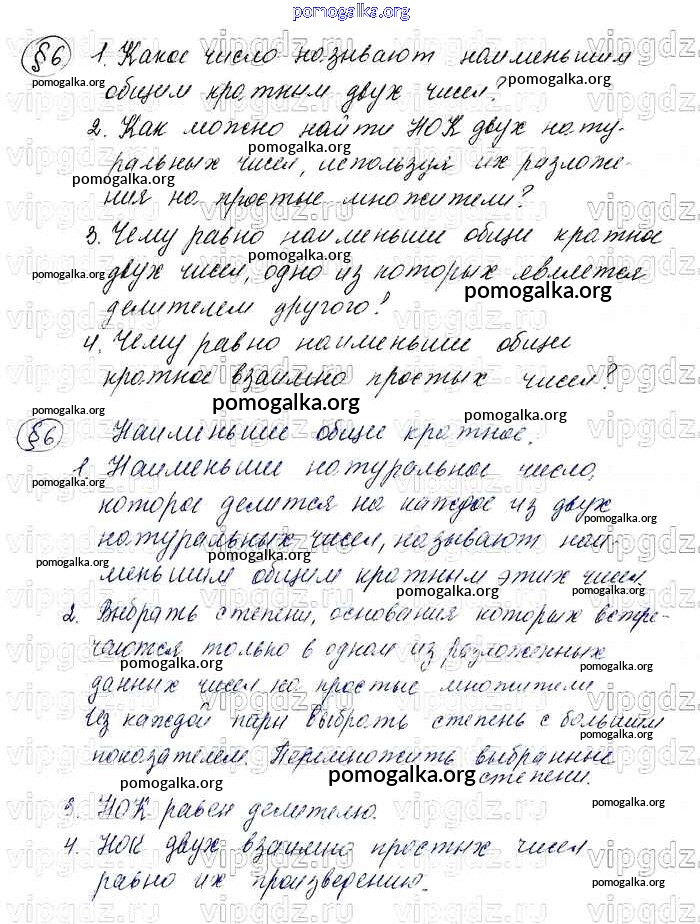 pomogalka.org
§6 1. Какое число называют наименьшим
общим кратным двух чисел?
2. Как можно найти НОК двух нату-
ральных чисел, используя их разложе-
ния на простые множители?
3. Чему равно наименьшее общее кратное
двух чисел, одно из которых является
делителем другого?
4. Чему равно наименьшее общее
кратное взаимно простых чисел?
§6 Наименьшее общее кратное.
1. Наименьшее натуральное число,
которое делится на каждое из двух
натуральных чисел, называют наи-
меньшим общим кратным этих чисел.
2. Выбрать степени, основания которых встре-
чаются только в одном из разложенных
данных чисел на простые множители.
Из каждой пары выбрать степень с большим
показателем. Перемножить выбранные
степени.
3. НОК равен делителю.
4. НОК двух взаимно простых чисел
равно их произведению.